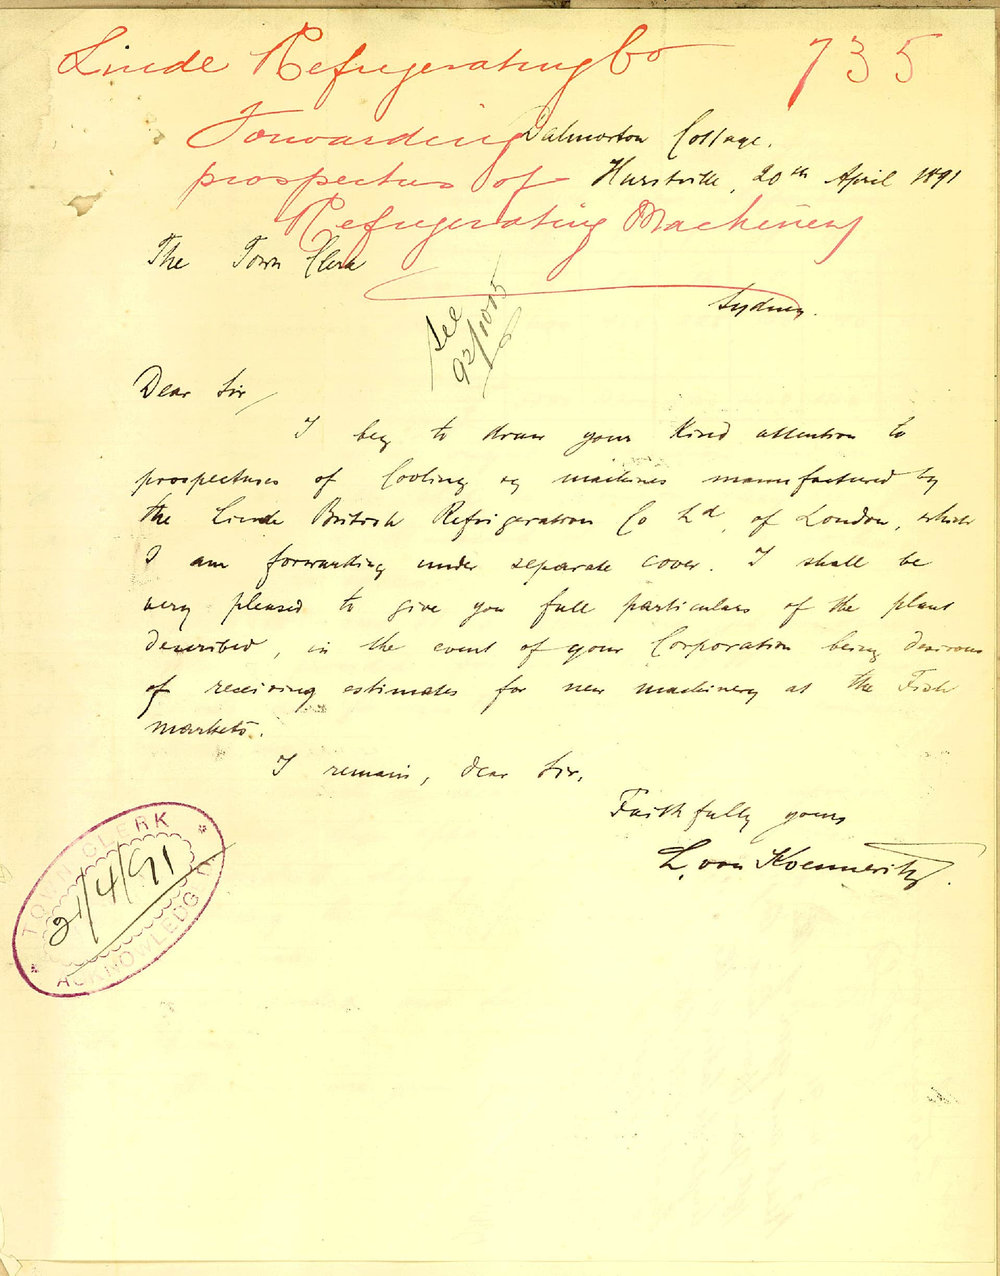 Linde Refrigerating Co 735
Forwarding
prospectus of
Refrigerating Machinery
Dalmorton Cottage.
Hurstville, 20th April 1891
The Town Clerk
Sydney.
see
92/1015
Dear Sir
I beg to draw your kind attention to
prospectuses of Cooling machines manufactured by
the Linde British Refrigeration Co Ld, of London, which
I am forwarding under separate cover. I shall be
very pleased to give you full particulars of the plant
described, in the event of your Corporation being desirous
of receiving estimates for new machinery at the Fish
markets.
I remain, dear Sir,
Faithfully yours
L. von Koenneritz.
TOWN CLERK
21/4/91
ACKNOWLEDGED